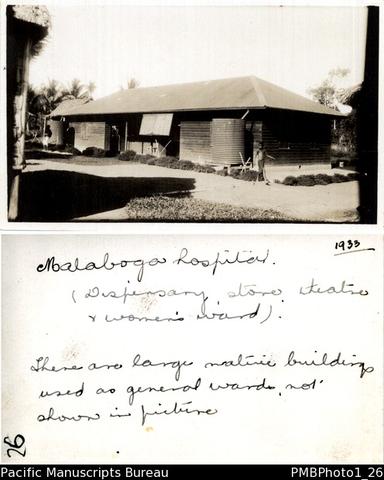 1933
Malaboga hospital.
(Dispensary, store, theatre
& women's ward).
There are large native buildings
used as general wards, not
shown in picture
26
Pacific Manuscripts Bureau
PMBPhoto1_26